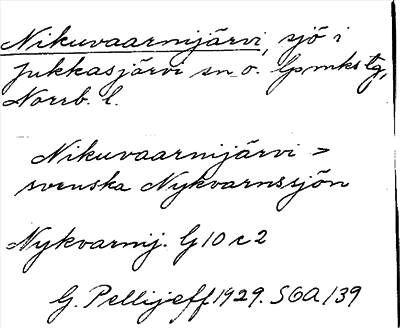 Nikuvaarnijärvi, sjö i
Jukkasjärvi sn o. lpmks tg,
Norrb. l.
Nikuvaarnijärvi >
svenska Nykvarnssjön
Nykvarnij. G 10 c 2
G. Pellijeff 1929. SOA 139